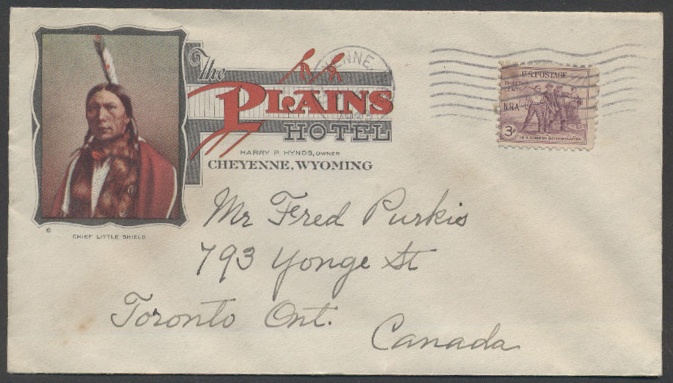 The
PLAINS
HOTEL
HARRY P. HYNDS, OWNER
CHEYENNE, WYOMING
© CHIEF LITTLE SHIELD
U.S. POSTAGE
NRA
3¢
Mr Fred Purkis
793 Yonge St
Toronto Ont.
Canada